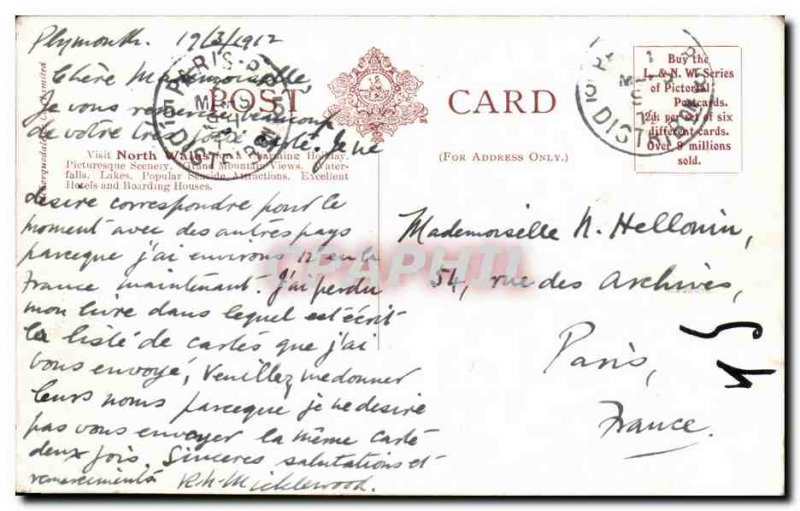 Plymouth. 19/3/1912
Chère Mademoiselle,
Je vous remercie beaucoup
de votre très jolie carte. Je ne
desire correspondre pour le
moment avec des autres pays
parceque j'ai environs 12 en la
France maintenant. J'ai perdu
mon livre dans lequel est écrit
la liste de cartes que j'ai
vous envoyé, Veuillez me donner
leurs noms parceque je ne desire
pas vous envoyer la même carte
deux fois. Sinceres salutations et
remerciments R.H. Micklewood.
POST CARD
(FOR ADDRESS ONLY.)
Visit North Wales Charming Holiday.
Picturesque Scenery. Grand Mountain Views. Water-
falls. Lakes. Popular Seaside Attractions. Excellent
Hotels and Boarding Houses.
McCorquodale & Co., Limited
Buy the
L. & N. W. Series
of Pictorial
Postcards.
2d. per set of six
different cards.
Over 9 millions
sold.
PARIS
DISTRIBUTION
DISTRIBUTION
Mademoiselle N. Hellouin,
54, rue des Archives,
Paris,
France.
CPAPHIL